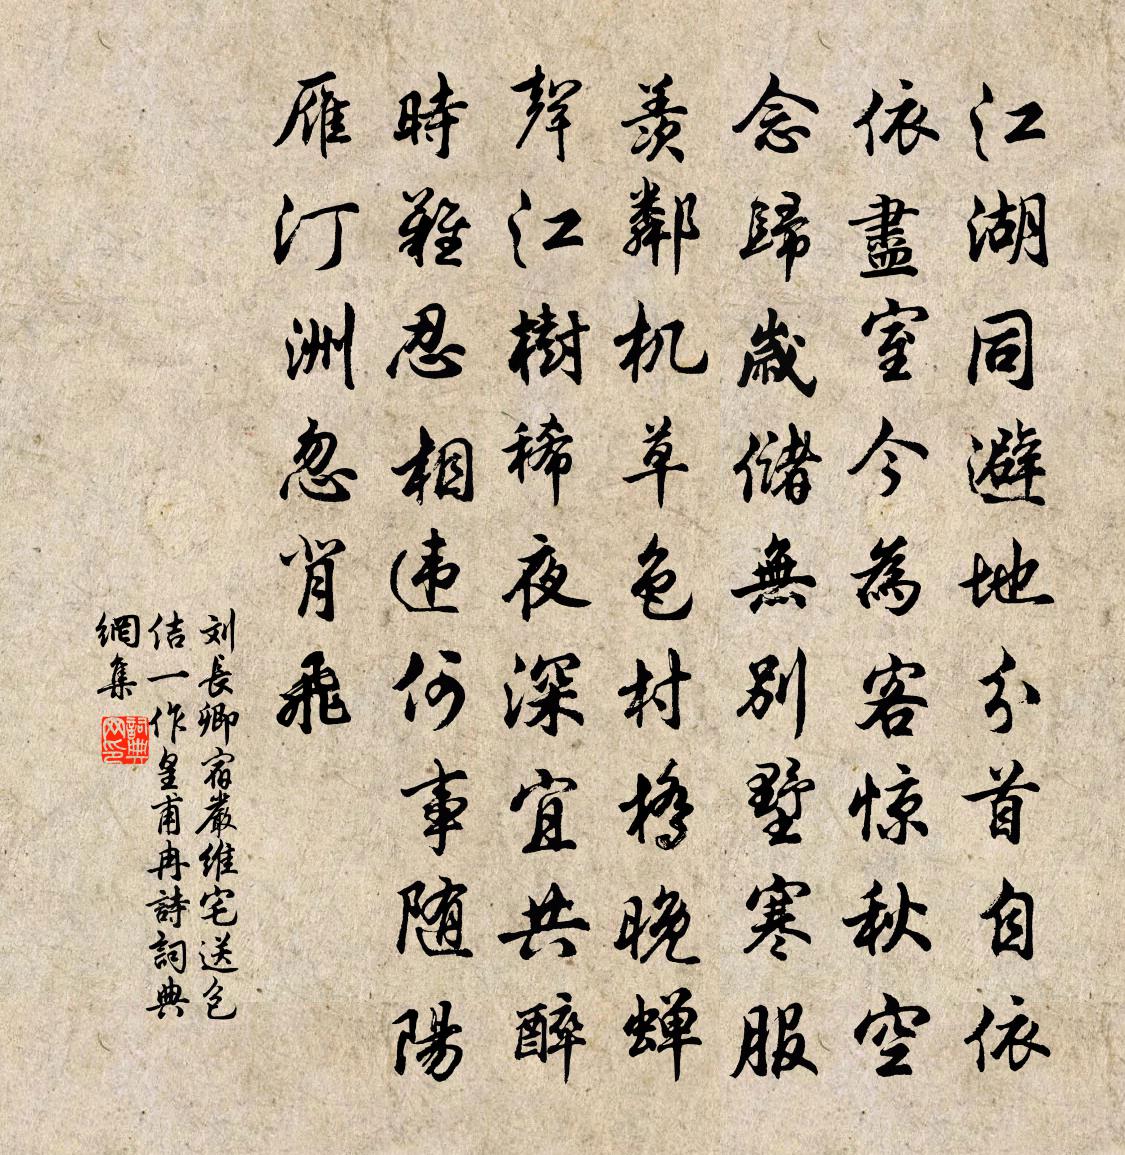 江湖同避地分首自依
依盡室今為客惊秋空
念歸歲儲無別墅寒服
羨鄰机草色村橋晚蟬
聲江樹稀夜深宜共醉
時難忍相違何事随陽
雁汀洲忽背飛
刘長卿宿嚴維宅送包
佶一作皇甫冉詩詞典
網集
詞典
网印